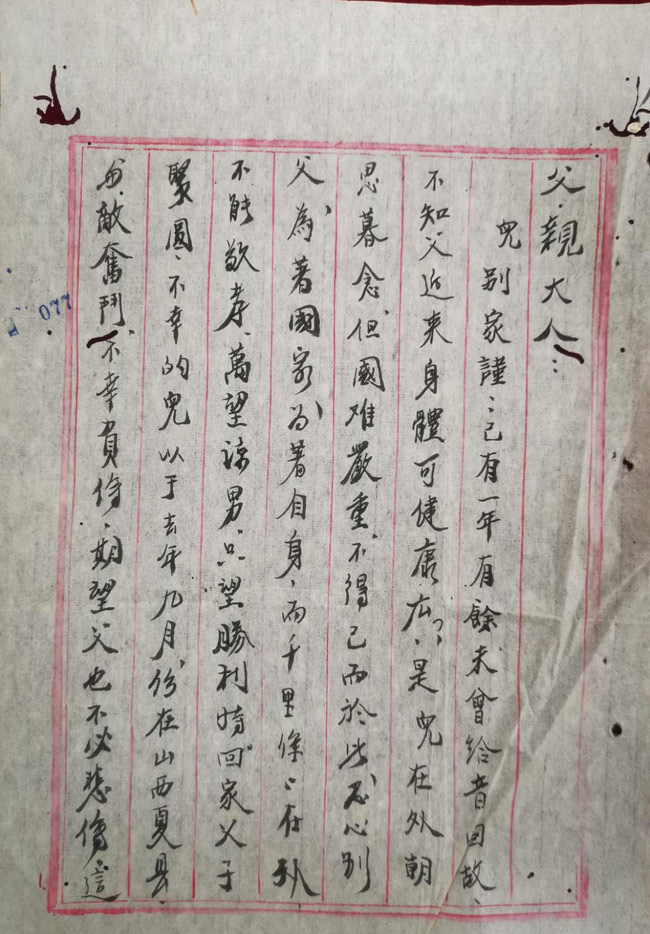 父親大人：
兒别家謹、已有一年有餘未曾给音回故、
不知父近来身體可健康広？、是兒在外朝
思暮念、但國难嚴重、不得已而於此、忍心别
父、為著國家、为著自身、而千里條、在外
不能敬孝、萬望谅男、只望勝利時回家父子
聚圓、不幸的兒以于去年九月份在山西夏县、
与敵奮鬥、不幸負傷、期望父也不必悲傷、這
077